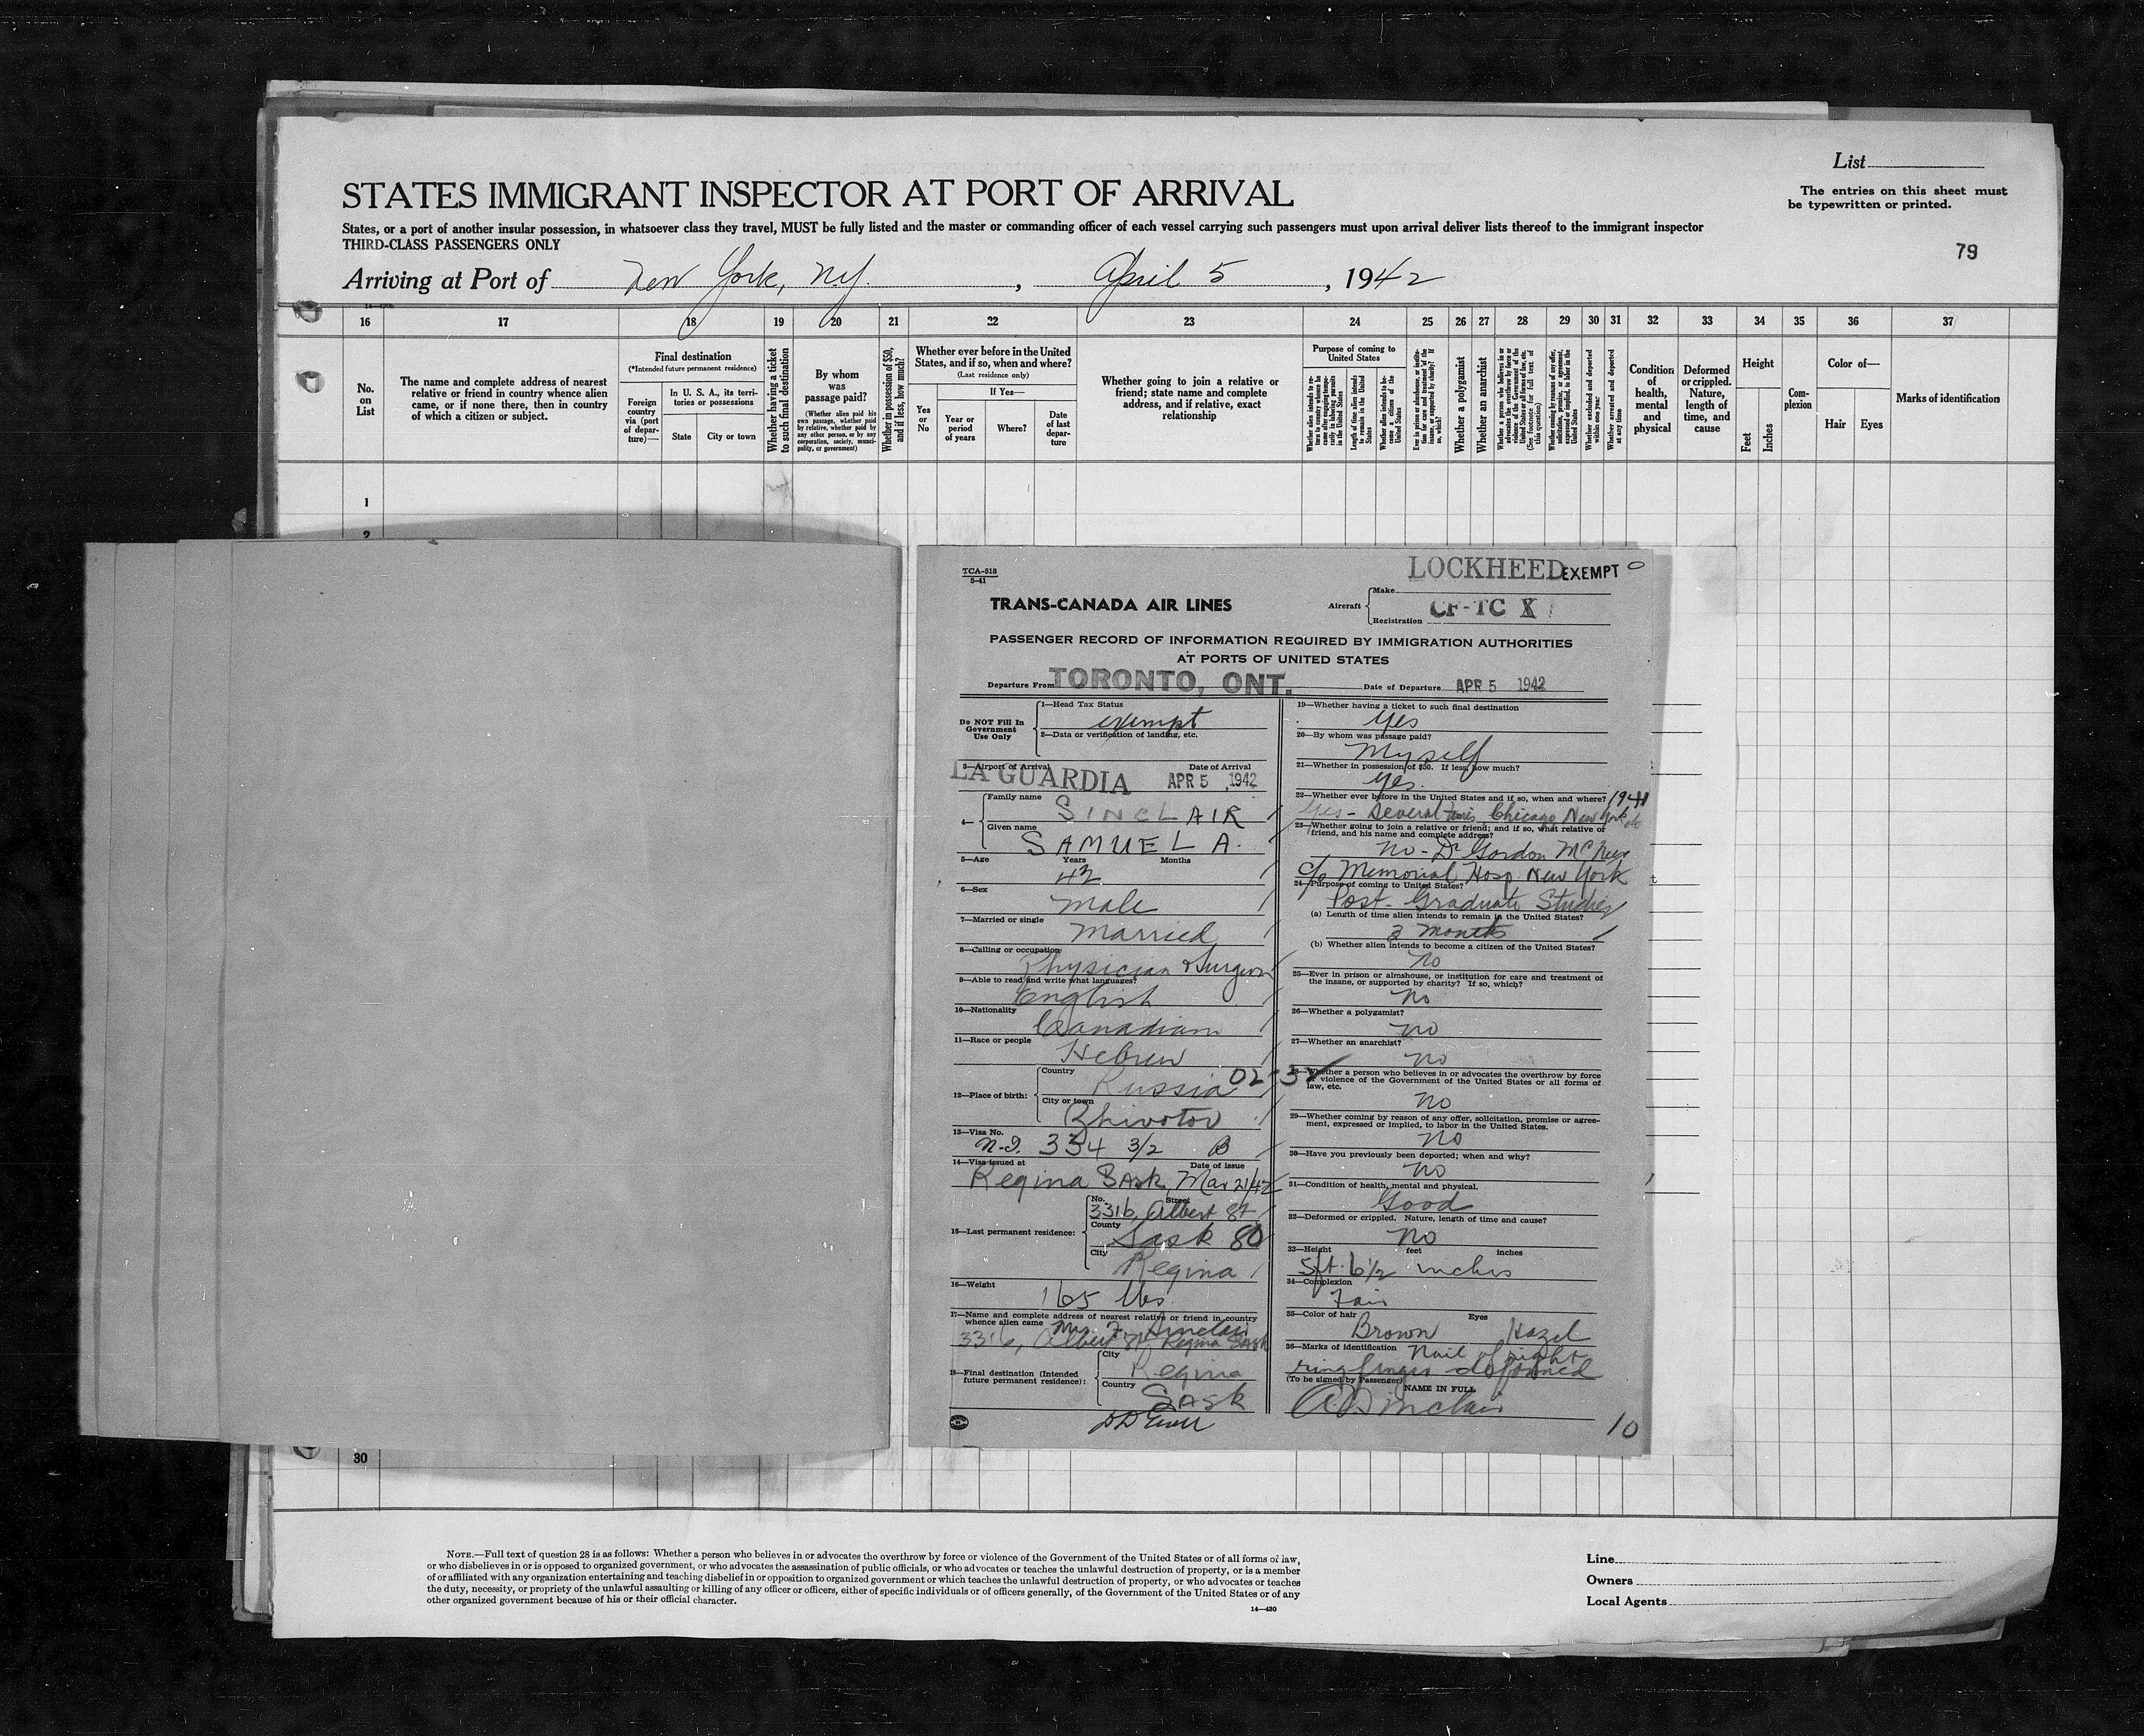 List
STATES IMMIGRANT INSPECTOR AT PORT OF ARRIVAL
The entries on this sheet must
be typewritten or printed.
States, or a port of another insular possession, in whatsoever class they travel, MUST be fully listed and the master or commanding officer of each vessel carrying such passengers must upon arrival deliver lists thereof to the immigrant inspector
THIRD-CLASS PASSENGERS ONLY
79
Arriving at Port of New York, N.Y., April 5, 1942
16 17 18 19 20 21 22 23 24 25 26 27 28 29 30 31 32 33 34 35 36 37
No. on List
The name and complete address of nearest relative or friend in country whence alien came, or if none there, then in country of which a citizen or subject.
Final destination
(*Intended future permanent residence)
Foreign country via (port of departure)—
In U. S. A., its territories or possessions
State
City or town
Whether having a ticket to such final destination
By whom was passage paid?
(Whether alien paid his own passage, whether paid by relative, whether paid by any other person, or by any corporation, society, municipality, or government)
Whether in possession of $50, and if less, how much?
Whether ever before in the United States, and if so, when and where?
(Last residence only)
Yes or No
If Yes—
Year or period of years
Where?
Date of last departure
Whether going to join a relative or friend; state name and complete address, and if relative, exact relationship
Purpose of coming to United States
Length of time alien intends to remain in the United States
Whether alien intends to become a citizen of the United States
Whether a polygamist
Whether an anarchist
(See footnote for full text of this question)
Whether excluded and deported within one year
Whether arrested and deported at any time
Condition of health, mental and physical
Deformed or crippled. Nature, length of time, and cause
Height
Feet
Inches
Complexion
Color of—
Hair
Eyes
Marks of identification
1
2
TCA-518
5-41
LOCKHEED EXEMPT
TRANS-CANADA AIR LINES
Aircraft
Make
Registration CF-TC X
PASSENGER RECORD OF INFORMATION REQUIRED BY IMMIGRATION AUTHORITIES
AT PORTS OF UNITED STATES
Departure From TORONTO, ONT. Date of Departure APR 5 1942
Do NOT Fill In
Government
Use Only
1—Head Tax Status
exempt
2—Data or verification of landing, etc.
3—Airport of Arrival Date of Arrival
LA GUARDIA APR 5 1942
4— Family name
SINCLAIR
Given name
SAMUEL A.
5—Age Years Months
42
6—Sex
Male
7—Married or single
Married
8—Calling or occupation
Physician & Surgeon
9—Able to read and write what languages?
English
10—Nationality
Canadian
11—Race or people
Hebrew
12—Place of birth:
Country
Russia 02-3
City or town
Zhivotov
13—Visa No.
N-I. 334 3/2 B
14—Visa issued at Date of issue
Regina Sask, Mar 21/42
15—Last permanent residence:
No. Street
3316, Albert St
County
Sask 80
City
Regina
16—Weight
165 lbs.
17—Name and complete address of nearest relative or friend in country
whence alien came Mrs. F. Sinclair
3316, Albert St, Regina Sask
18—Final destination (Intended
future permanent residence):
City
Regina
Country
Sask
19—Whether having a ticket to such final destination
Yes
20—By whom was passage paid?
Myself
21—Whether in possession of $50. If less, how much?
Yes.
22—Whether ever before in the United States and if so, when and where? 1941
Yes - Several times Chicago New York etc
23—Whether going to join a relative or friend; and if so, what relative or
friend, and his name and complete address?
No - Dr Gordon
c/o Memorial Hosp. New York
24—Purpose of coming to United States?
Post-Graduate Studies
(a) Length of time alien intends to remain in the United States?
3 months
(b) Whether alien intends to become a citizen of the United States?
No
25—Ever in prison or almshouse, or institution for care and treatment of
the insane, or supported by charity? If so, which?
No
26—Whether a polygamist?
No
27—Whether an anarchist?
No
28—Whether a person who believes in or advocates the overthrow by force
or violence of the Government of the United States or all forms of
law, etc.
No
29—Whether coming by reason of any offer, solicitation, promise or agree-
ment, expressed or implied, to labor in the United States.
No
30—Have you previously been deported; when and why?
No
31—Condition of health, mental and physical.
Good
32—Deformed or crippled. Nature, length of time and cause?
No
33—Height feet inches
5 ft. 6 1/2 inches
34—Complexion
Fair
35—Color of hair Eyes
Brown Hazel
36—Marks of identification Nail of right
ring finger deformed
(To be signed by Passenger) NAME IN FULL
Sinclair
10
30
NOTE.—Full text of question 28 is as follows: Whether a person who believes in or advocates the overthrow by force or violence of the Government of the United States or of all forms of law,
or who disbelieves in or is opposed to organized government, or who advocates the assassination of public officials, or who advocates or teaches the unlawful destruction of property, or is a member
of or affiliated with any organization entertaining and teaching disbelief in or opposition to organized government or which teaches the unlawful destruction of property, or who advocates or teaches
the duty, necessity, or propriety of the unlawful assaulting or killing of any officer or officers, either of specific individuals or of officers generally, of the Government of the United States or of any
other organized government because of his or their official character.
14—430
Line
Owners
Local Agents